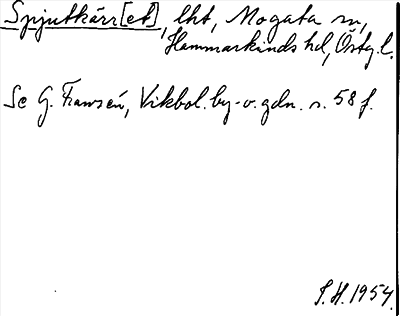 Spjutkärr[et], lht, Mogata sn,
Hammarkinds hd, Östg. l.
Se G. Franzén, Vikbol. by- o. gdn. s. 58 f.
S. H. 1954.